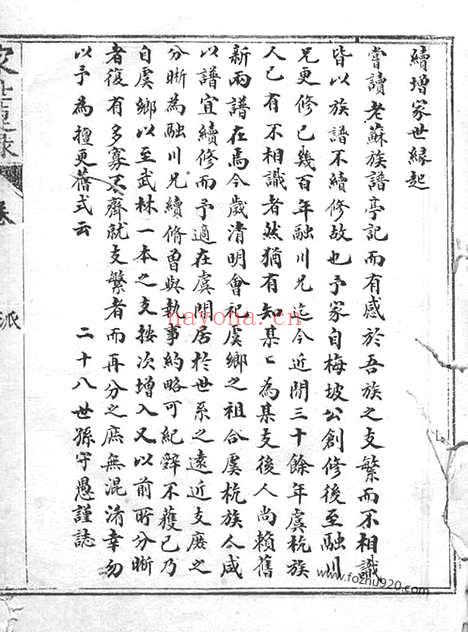 續增家世緣起
嘗讀老蘇族譜亭記而有感於吾族之支繁而不相識
皆以族譜不續修故也予家自梅坡公創修後至融川
兄更修已幾百年融川兄迄今近閱三十餘年虞杭族
人已有不相識者然猶有知某某為某支後人尚賴舊
新兩譜在焉今歲清明會祀虞鄉之祖合虞杭族人咸
以譜宜續修而予適在虞閒居於世系之遠近支庶之
分晰為融川兄續脩曾與執事約略可紀辭不獲已乃
自虞鄉以至武林一本之支按次增入又以前所分晰
者復有多寡不齊就支繁者而再分之庶無混淆幸勿
以予為擅更舊式云
二十八世孫守愚謹誌
家世
錄
卷
派
nayona.cn
www.fozhu920.com